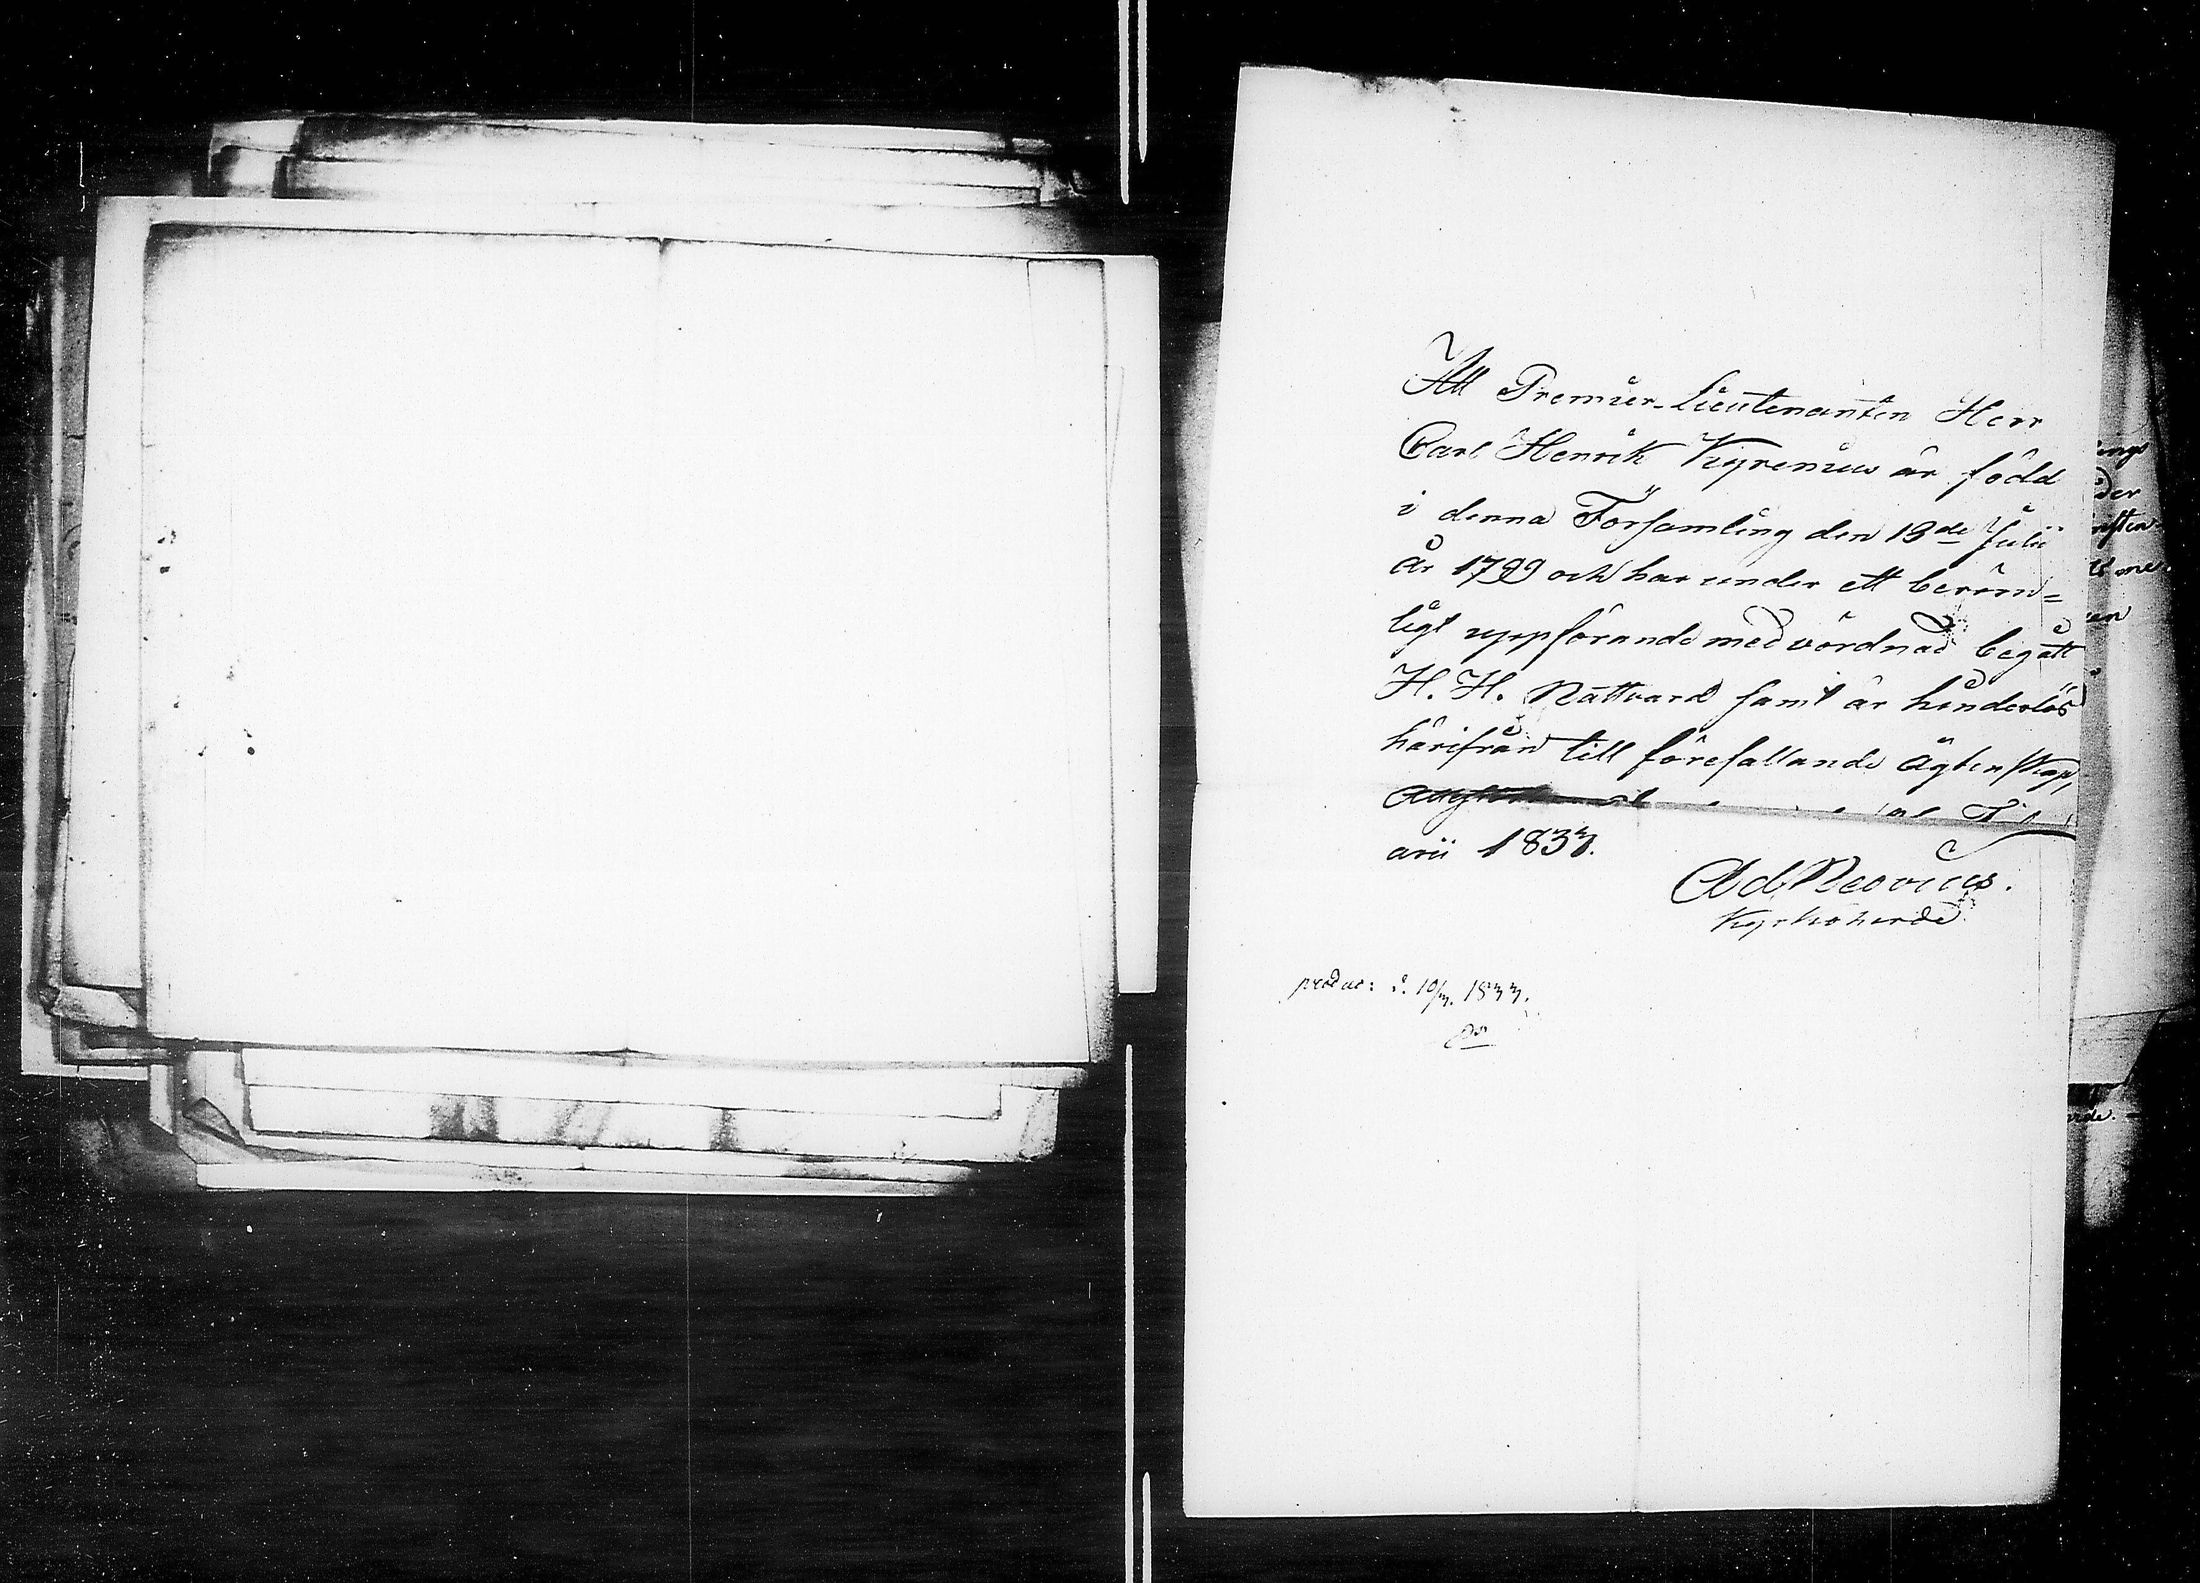 Att Premier-Lieutenanten Herr
Carl Henrik Kyrenius är född
i denna Församling den 13de Julii
år 1799 och har under ett beröm=
ligt uppförande med vördnad begått
H. H. Nattvard samt är hinderlös
härifrån till förefallande ägtenskap,
arii 1833.
Ad Neovius.
Kyrkoherde
produc: d. 10/3. 1833.